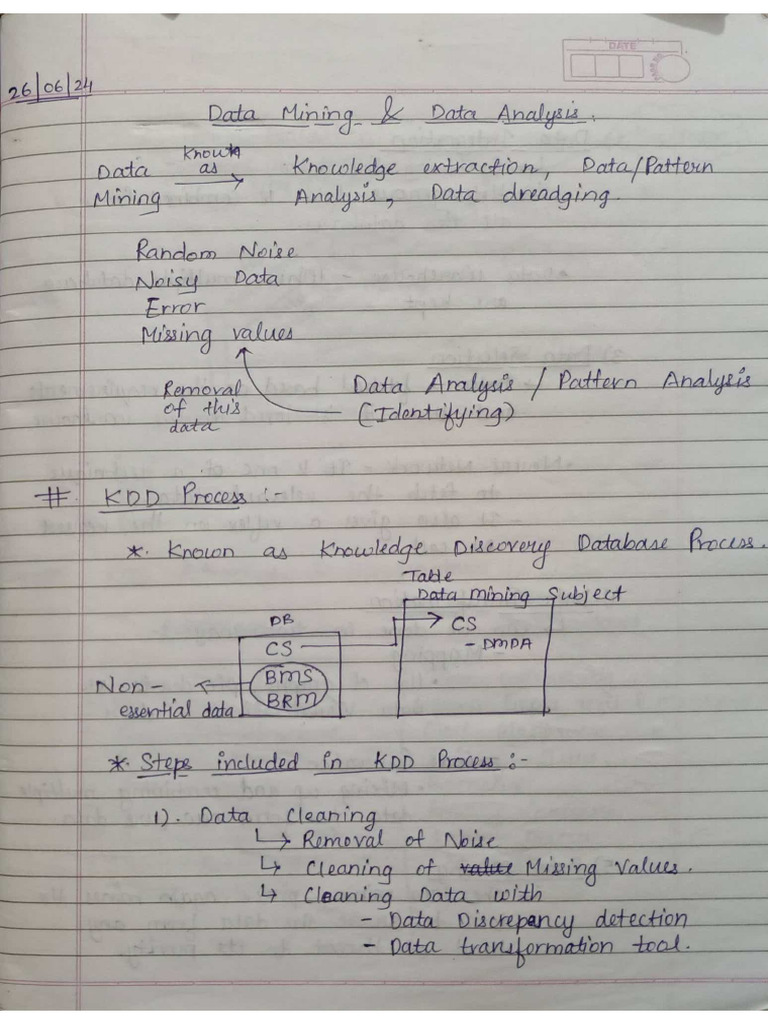 DATE
26/06/24
Data Mining & Data Analysis.
Data Mining Known as → Knowledge extraction, Data/Pattern
Analysis, Data dreadging.
Random Noise
Noisy Data
Error
Missing values
Removal of this data
Data Analysis / Pattern Analysis
(Identifying)
#. KDD Process :-
*. Known as Knowledge Discovery Database Process.
Table
Data mining Subject
DB
CS
BMS
BRM
CS
- DMDA
Non-
essential data
*. Steps included in KDD Process :-
1). Data Cleaning
↳ Removal of Noise
↳ Cleaning of value Missing Values.
↳ Cleaning Data with
- Data Discrepancy detection
- Data transformation tool.